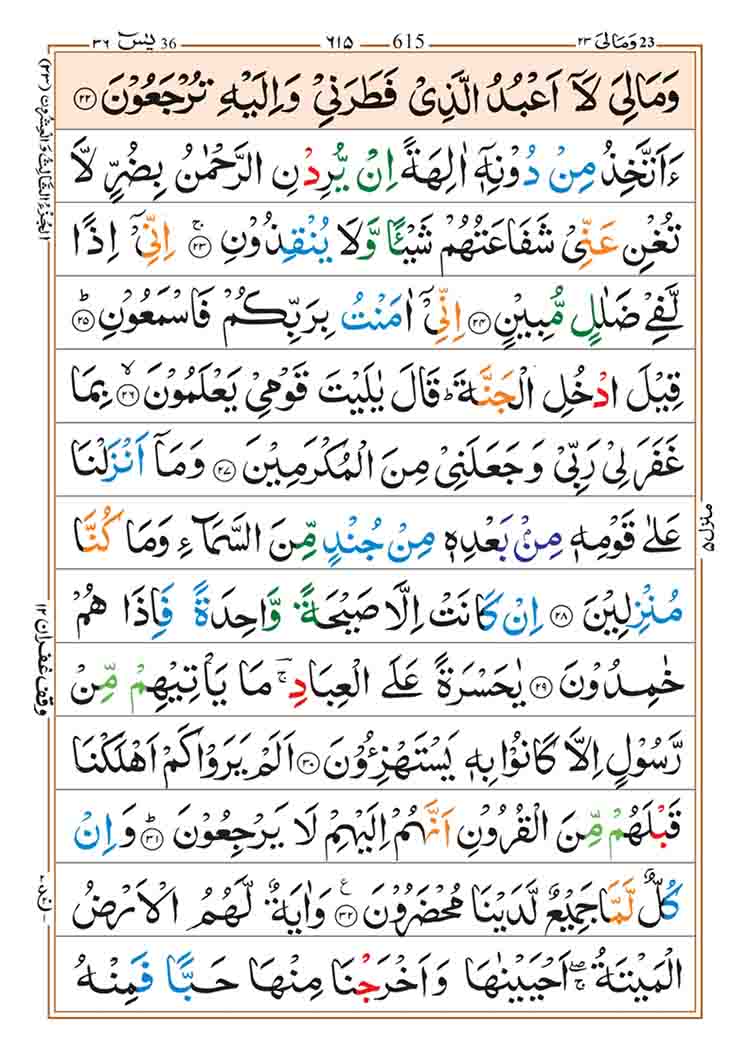 ٣٦ يٰسٓ 36 ٦١٥ — 615 ٢٣ وَمَالِىَ 23
وَمَالِىَ لَاۤ اَعْبُدُ الَّذِىْ فَطَرَنِىْ وَاِلَيْهِ تُرْجَعُوْنَ ﴿٢٢﴾
ءَاَتَّخِذُ مِنْ دُوْنِهٖۤ اٰلِهَةً اِنْ يُّرِدْنِ الرَّحْمٰنُ بِضُرٍّ لَّا
تُغْنِ عَنِّىْ شَفَاعَتُهُمْ شَيْـًٔا وَّلَا يُنْقِذُوْنِ ﴿٢٣﴾ۚ اِنِّىْۤ اِذًا
لَّفِىْ ضَلٰلٍ مُّبِيْنٍ ﴿٢٤﴾ اِنِّىْۤ اٰمَنْتُ بِرَبِّكُمْ فَاسْمَعُوْنِ ﴿٢٥﴾ؕ
قِيْلَ ادْخُلِ الْجَنَّةَ ؕ قَالَ يٰلَيْتَ قَوْمِىْ يَعْلَمُوْنَ ﴿٢٦﴾ۙ بِمَا
غَفَرَ لِىْ رَبِّىْ وَجَعَلَنِىْ مِنَ الْمُكْرَمِيْنَ ﴿٢٧﴾ وَمَاۤ اَنْزَلْنَا
عَلٰى قَوْمِهٖ مِنْۢ بَعْدِهٖ مِنْ جُنْدٍ مِّنَ السَّمَآءِ وَمَا كُنَّا
مُنْزِلِيْنَ ﴿٢٨﴾ اِنْ كَانَتْ اِلَّا صَيْحَةً وَّاحِدَةً فَاِذَا هُمْ
خٰمِدُوْنَ ﴿٢٩﴾ يٰحَسْرَةً عَلَى الْعِبَادِ ۚ مَا يَاْتِيْهِمْ مِّنْ
رَّسُوْلٍ اِلَّا كَانُوْا بِهٖ يَسْتَهْزِءُوْنَ ﴿٣٠﴾ اَلَمْ يَرَوْا كَمْ اَهْلَكْنَا
قَبْلَهُمْ مِّنَ الْقُرُوْنِ اَنَّهُمْ اِلَيْهِمْ لَا يَرْجِعُوْنَ ﴿٣١﴾ؕ وَاِنْ
كُلٌّ لَّمَّا جَمِيْعٌ لَّدَيْنَا مُحْضَرُوْنَ ﴿٣٢﴾ۧ وَاٰيَةٌ لَّهُمُ الْاَرْضُ
الْمَيْتَةُ ۖۚ اَحْيَيْنٰهَا وَاَخْرَجْنَا مِنْهَا حَبًّا فَمِنْهُ
الجزء الثالث والعشرون (٢٣)
وقف غفران ١٢
منزل ٥